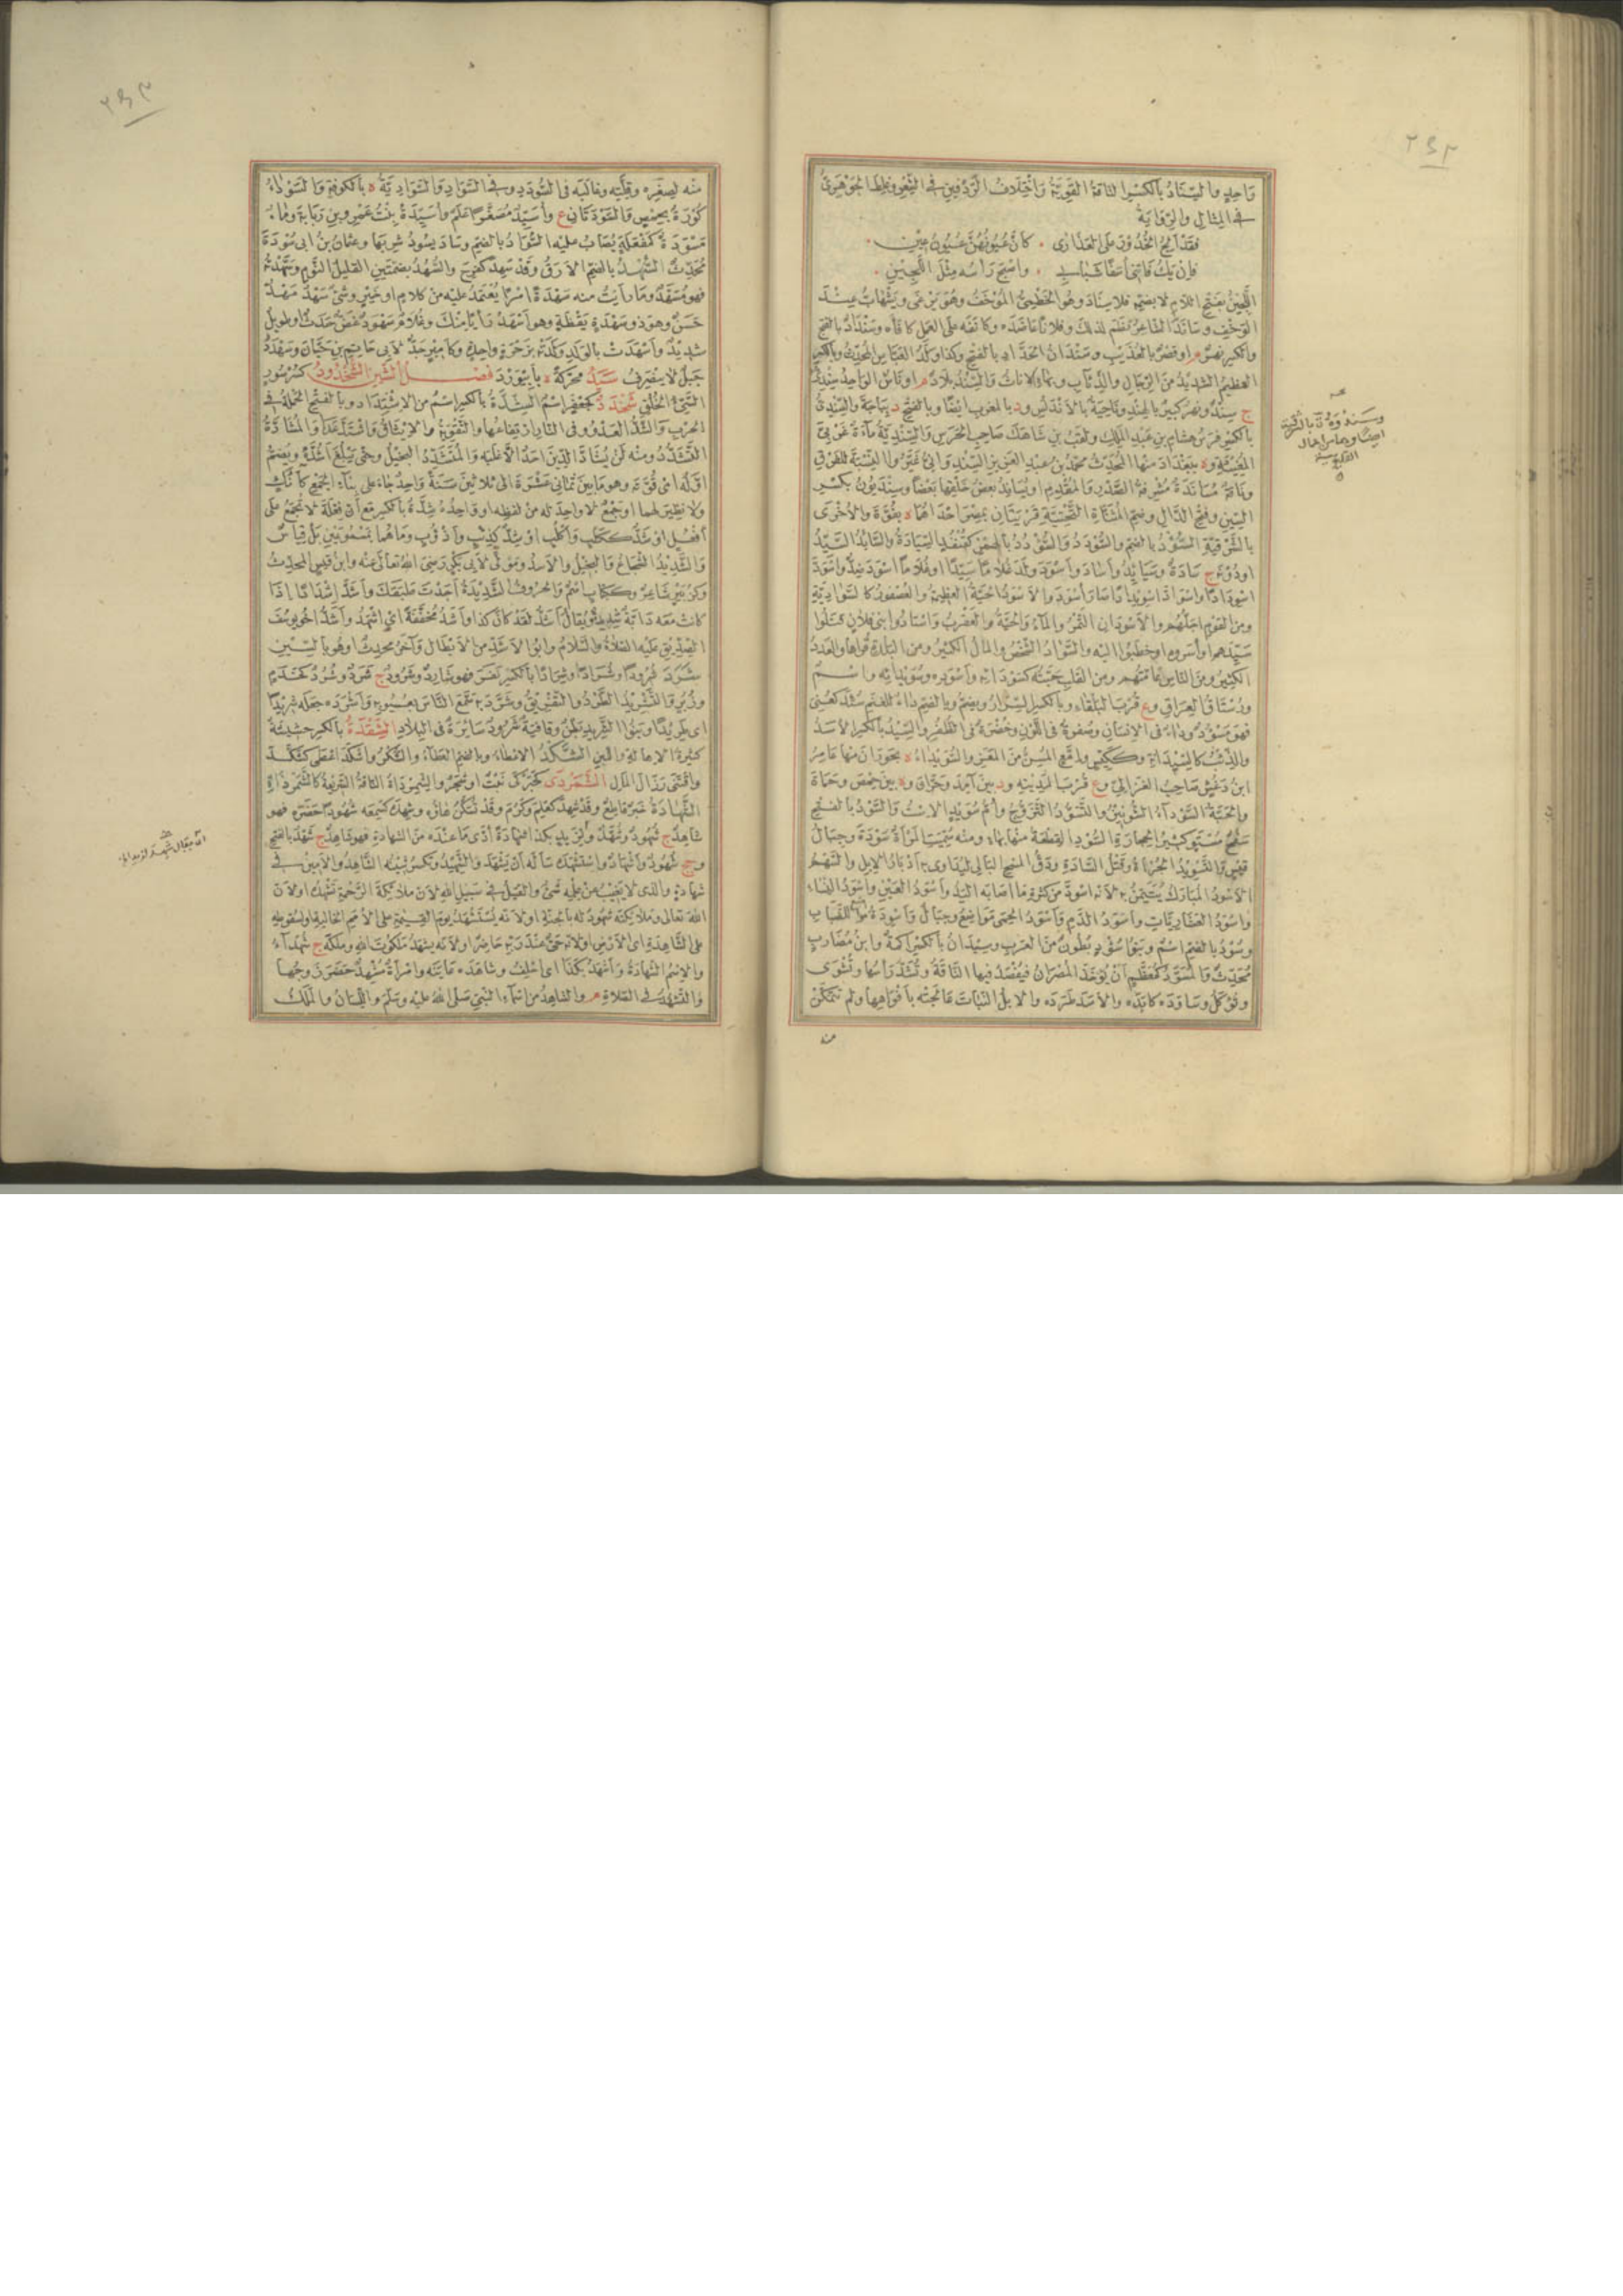 وَاحِدٍ والسِّنَادُ بالكسر الناقةُ القَوِيَّةُ وَاخْتِلَافُ الرِّدْفَيْنِ فى الشِّعْرِ وغَلِطَ الجَوْهَرِىُّ
فى المِثَالِ والرِّوَايَةُ
فَقَدْ أَلِجُ الخُدُورَ عَلَى العَذَارَى ۰ كَأَنَّ عُيُونَهُنَّ عُيُونُ عِينِ ۰
فَإِنْ يَكُ فَاتَنِى أَسَفًا شَبَابِى ۰ وَأَصْبَحَ رَأْسُهُ مِثْلَ اللَّجِينِ ۰
اللَّجِينُ بفتح اللام لا بضمه فلا سناد وهو الخَطْمِىُّ المُوخَفُ وهُوَ يَرْغَى ويَشْهَابُّ عِنْدَ
الوَخْفِ وسَانَدَ الشاعِرُ نَظَمَ كذلك وفلانًا عاضَدَه وكاتَفَه على العَمَلِ كافَأَه وسَنْدَادٌ بالفتح
والكسر نهرٌ م او قصرٌ بالعُذَيْبِ وسَنْدَانُ الحَدَّادِ بالفتح وكذا وَلَدُ العَبَّاسِ المُحَدِّثُ وبالكسر
العظيمُ الشديدُ من الرجالِ والذِّئَابِ وبهاءٍ الاتانُ والسِّنْدُ بِلادٌ م او ناسٌ الواحِدُ سِنْدِىٌّ
ج سِنْدٌ ونهرٌ كبيرٌ بالهِنْدِ ونَاحِيَةٌ بالأَنْدَلُسِ و د بالمغربِ ايضًا وبالفتح د بِبَاجَةَ والسِّنْدِىُّ
بالكسر فرسُ هشامِ بن عبدِ المَلِكِ ولَقَبُ بنِ شَاهَكَ صَاحِبِ الحَرَسِ والسِّنْدِيَّةُ مَاءَةٌ غَرْبِىَّ
المُغِيثَةِ و ه ببَغْدَادَ منها المُحَدِّثُ محمدُ بنُ عبدِ العزيزِ السِّنْدِوَانِىُّ غَيَّرُوا النِّسْبَةَ للفَرْقِ
ونَاقَةٌ مُسَانَدَةٌ مُشْرِفَةُ الصَّدْرِ والمُقَدَّمِ او يُسانِدُ بعضُ خَلْقِهَا بَعْضًا وسِنْدَيُونُ بكسرِ
السينِ وفتحِ الدالِ وضمِ المُثَنَّاةِ التَّحْتِيَّةِ قَرْيَتَانِ بِمِصْرَ احْدَاهُمَا ه بِفُوَّةَ والأُخْرَى
بالشَّرْقِيَّةِ السُّودُ بالضم والسُّودَدُ والسُّؤْدُدُ بالهمز كقُنْفُذٍ السِّيَادَةُ والسَّائِدُ السَّيِّدُ
او دُونَه ج سَادَةٌ وسَيَائِدُ وأَسَادَ وأَسْوَدَ ولَدَ غُلَامًا سَيِّدًا او غُلَامًا أَسْوَدَ ضِدٌّ واسْوَدَّ
اسْوِدَادًا واسْوَادَّ اسْوِيدَادًا صَارَ أَسْوَدَ والأَسْوَدُ الحَيَّةُ العظيمةُ والعُصْفُورُ كالسَّوَادِيَّةِ
ومن القوم أجَلُّهُم والأَسْوَدَانِ التَّمْرُ والماءُ والحَيَّةُ والعَقْرَبُ واسْتَادُوا بَنِى فلانٍ قَتَلُوا
سَيِّدَهم او أَسَرُوه او خَطَبُوا اليه والسَّوَادُ الشَّخْصُ والمالُ الكثيرُ ومن البَلْدَةِ قُرَاهَا والعَدَدُ
الكثيرُ ومن الناس عَامَّتُهُم ومن القَلْبِ حَبَّتُه كسَوْدَائِه وأَسْوَدِه وسُوَيْدَائِه واسمٌ
ورُسْتَاقُ العِرَاقِ و ع قُرْبَ البَلْقَاءِ وبالكسر السِّرَارُ ويضم وبالضم دَاءٌ للغنمِ سُئِدَ كعُنِىَ
فهو مَسْؤُودٌ وداءٌ فى الإنسانِ وصُفْرَةٌ فى اللَّوْنِ وخُضْرَةٌ فى الظُّفُرِ والسِّيدُ بالكسر الأسَدُ
والذئبُ كالسِّيدَانَةِ وككَيِّسٍ وإمَّعٍ المُسِنُّ من المَعَزِ والسُّوَيْدَاءُ ه بحَوْرَانَ منها عَامِرُ
ابنُ دَغَشٍ صَاحِبُ الغَزَالِىِّ و ع قُرْبَ المَدِينَةِ و د بين آمِدَ وحَرَّانَ و ه بين حِمْصَ وحَمَاةَ
والحَبَّةُ السَّوْدَاءُ الشُّونِيزُ والتَّسَوُّدُ التَّزَوُّجُ وأُمُّ سُوَيْدٍ الاسْتُ والسَّوْدُ بالفتح
سَفْحٌ مُسْتَوٍ كثيرُ الحِجَارَةِ السُّودِ القِطْعَةُ منها بهاءٍ ومنه سُمِّيَتِ المَرْأَةُ سَوْدَةَ وجِبَالُ
قَيْسٍ والتَّسْوِيدُ الجُرْأَةُ وقَتْلُ السَّادَةِ ودَقُّ المِسْحِ البَالِى ليُدَاوَى به أَدْبَارُ الإبِلِ والسَّهْمُ
الأَسْوَدُ المُبَارَكُ يُتَيَمَّنُ به لأنه اسْوَدَّ من كثرةِ ما أصَابَه اليَدُ وأَسْوَدُ العَيْنِ وأَسْوَدُ النَّسَا
وأَسْوَدُ العُشَارِيَاتِ وأَسْوَدُ الدَّمِ وأَسْوَدُ الحِمَى مَوَاضِعُ وجِبَالٌ وأَسْوَدَةُ ماءٌ للضِّبَابِ
وسُودٌ بالضم اسمٌ وبَنُو سُودٍ بُطُونٌ من العَرَبِ وسِيدَانُ بالكسر أَكَمَةٌ وابنُ مُضَارِبٍ
مُحَدِّثٌ والمُسَوَّدُ كمُعَظَّمٍ أنْ تُؤْخَذَ المُصْرَانُ فيُفْصَدَ فيها النَّاقَةُ وتُشَدَّ رَأْسُها وتُشْوَى
وتُؤْكَلُ وسَاوَدَه كابَدَه والأَسَدَ طَرَدَه والإبِلُ النَّبَاتَ عَالَجَتْه بأَفْوَاهِها ولم تَتَمَكَّنْ
منه
منه لِصِغَرِه وقِلَّتِه وغالَبَه فى السُّودَدِ وفى السَّوَادِ والسَّوَادِيَّةُ ه بالكوفةِ والسَّوْدَاءُ
كُورَةٌ بحِمْصٍ والسَّوْدَتَانِ ع وأُسَيِّدٌ مُصَغَّرًا عَلَمٌ وأُسَيِّدَةُ بِنْتُ عَمْرِو بن رَبَابَةَ وماءٌ
مَسْوَدَةٌ كمَفْعَلَةٍ يُصَابُ عليه السُّوَادُ بالضم وسَادَ يَسُودُ شَرِبَها وعثمانُ بنُ ابى سَوْدَةَ
مُحَدِّثٌ السُّهْدُ بالضم الأَرَقُ وقد سَهِدَ كفَرِحَ والسُّهُدُ بضمتين القليلُ النَّوْمِ وسَهَّدْتُه
فهو مُسَهَّدٌ وما رأيتُ منه سَهْدَةً أمْرًا يُعْتَمَدُ عليه من كلامٍ او خَيْرٍ وشىءٌ سَهْدٌ مَهْدٌ
حَسَنٌ وهو ذو سَهْدَةٍ يَقْظَةٍ وهو أَسْهَدُ رَأْيًا مِنْكَ وغُلَامٌ سَهْوَدٌ غَضٌّ حَدَثٌ او طويلٌ
شديدٌ وأَسْهَدَتْ بالوَلَدِ وَلَدَتْه بزَحْرَةٍ واحِدَةٍ وكأميرٍ جَدٌّ لأبى حاتِمِ بنِ حِبَّانَ وسَهْدَدُ
جَبَلٌ لا يَنْصَرِفُ سَيَدُ محركةً ه بأَبِيوَرْدَ فصل الشين الشُّخْدُودُ كسُرْسُورٍ
السَّيِّئُ الخُلُقِ شَخْدَدٌ كجَعْفَرٍ اسمٌ الشِّدَّةُ بالكسر اسمٌ من الاشْتِدَادِ وبالفتح الحَمْلَةُ فى
الحَرْبِ والشَّدُّ العَدْوُ وفى النارِ ارتفاعُها والتَّقْوِيَةُ والإيثَاقُ واشْتَدَّ عَدَا والمُشَادَّةُ
التَّشَدُّدُ ومنه لَنْ يُشَادَّ الدِّينَ أحَدٌ إلَّا غَلَبَه والمُتَشَدِّدُ البَخِيلُ وحتى يَبْلُغَ أَشُدَّهُ ويُضَمُّ
أوَّلُه اى قُوَّتَه وهو ما بين ثَمَانِى عَشْرَةَ الى ثلاثينَ سَنَةً واحِدٌ جاء على بِنَاءِ الجَمْعِ كآنُكٍ
ولا نظيرَ لهما او جَمْعٌ لا واحِدَ له من لفظِه او واحِدُه شِدَّةٌ بالكسر مع أنَّ فِعْلَةَ لا تُجْمَعُ على
أَفْعُلٍ او شَدٌّ ككَلْبٍ وأَكْلُبٍ او شِدٌّ كذِئْبٍ وأَذْؤُبٍ وما هما بمَسْمُوعَيْنِ بل قِيَاسٌ
والشَّدِيدُ الشجاعُ والبخيلُ والأَسَدُ ومَوْلًى لأبى بَكْرٍ رضى اللهُ تعالى عنه وابنُ قَيْسٍ المحدِّثُ
وكزُبَيْرٍ شاعِرٌ وككِتَابٍ اسمٌ والحُرُوفُ الشَّدِيدَةُ أَجَدْتَ طَبَقَكَ وأَشَدَّ إشْدَادًا إذا
كانت معه دَابَّةٌ شَدِيدَةٌ ويُقَالُ أَشَدُّ لقد كان كذا وأَشَدُ مُخَفَّفَةً اى أَشْهَدُ وأَشَدُّ اخُو يُوسُفَ
الصِّدِّيقِ عليه الصَّلَاةُ والسَّلَامُ وابُو الأَشَدِّ من الأَبْطَالِ وآخَرُ محدِّثٌ او هو بالسينِ
شَرَدَ شُرُودًا وشُرَادًا وشِرَادًا بالكسر نَفَرَ فهو شَارِدٌ وشَرُودٌ ج شَرَدٌ وشُرُدٌ كخَدَمٍ
وزُبُرٍ والتَّشْرِيدُ الطَّرْدُ والتَّفْرِيقُ وشَرَّدَ به سَمَّعَ الناسَ بعُيُوبِه وأَشْرَدَه جعله شَرِيدًا
اى طَرِيدًا وبَنُو الشَّرِيدِ بَطْنٌ وقافِيَةٌ شَرُودٌ سَائِرَةٌ فى البِلَادِ الشِّقْدَةُ بالكسر حشيشةٌ
كثيرةُ الإهالةِ واللبنِ الشَّكْدُ الإعطاءُ وبالضم العَطَاءُ والشُّكْرُ وأَشْكَدَ أَعْطَى كشَكَدَ
واقْتَنَى رُذَالَ المالِ الشَّمَرْدَى كخَبَرْكَى نَبْتٌ او شَجَرٌ والشَّمَرْدَاةُ الناقةُ السريعةُ كالشَّمَرْذَاةِ
الشَّهَادَةُ خَبَرٌ قاطِعٌ وقد شَهِدَ كعَلِمَ وكَرُمَ وقد تُسَكَّنُ هاؤُه وشَهِدَه كسَمِعَه شُهُودًا حَضَرَه فهو
شاهِدٌ ج شُهُودٌ وشُهَّدٌ ولزَيْدٍ بكذا شَهَادَةً أَدَّى ما عِنْدَه من الشهادَةِ فهو شاهِدٌ ج شَهْدٌ بالفتح
وجج شُهُودٌ وأَشْهَادٌ واسْتَشْهَدَه سَأَلَه أنْ يَشْهَدَ والشَّهِيدُ وتُكْسَرُ شِينُه الشَّاهِدُ والأَمِينُ فى
شهادةٍ والذى لا يَغِيبُ عن عِلْمِه شىءٌ والقَتِيلُ فى سَبِيلِ اللهِ لأن ملائكةَ الرَّحْمَةِ تَشْهَدُه او لأن
اللهَ تعالى وملائكتَه شُهُودٌ له بالجَنَّةِ او لأنه يُسْتَشْهَدُ يومَ القِيمَةِ على الأُمَمِ الخالِيَةِ او لسُقُوطِه
على الشَّاهِدَةِ اى الأَرْضِ او لأنه حَىٌّ عند رَبِّه حاضِرٌ او لأنه يَشْهَدُ مَلَكُوتَ اللهِ ومُلْكَه ج شُهَدَاءُ
والاسمُ الشهادَةُ وأَشْهَدُ بكذا اى أَحْلِفُ وشاهَدَه عَايَنَه وامْرأةٌ مُشْهِدٌ حَضَرَ زَوْجُها
والتَّشَهُّدُ فى الصَّلَاةِ م والشاهِدُ من أسماءِ النبىِّ صلى الله عليه وسلم واللِّسَانُ والمَلَكُ